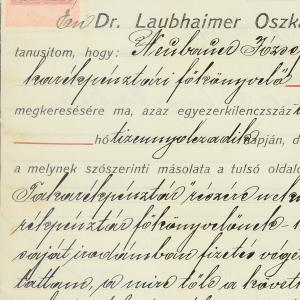 Én Dr. Laubhaimer Oszká
tanusítom, hogy: Neubauer József
takarékpénztári főkönyvelő
megkeresésére ma, azaz egyezerkilenczszáz
hó tizennyolczadik napján, d
a melynek szószerinti másolata a tulsó oldalo
Takarékpénztár" részére nek
rékpénztár főkönyvelőnek
saját irodámban fizetés vége
tattam, a mire tőle a követ